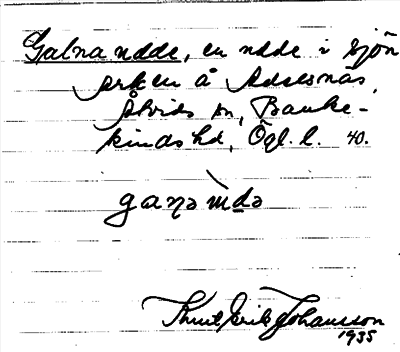 Galna udde, en udde i sjön
Erken å Adelsnäs,
Åtvids sn, Banke-
kinds hd, Ögl. l. 40.
Knut Erik Johansson
1935